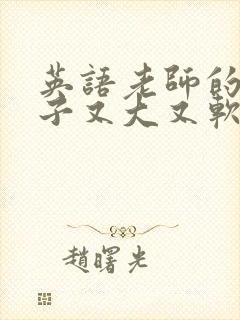 英語老師的
子又大又軟
趙曙光